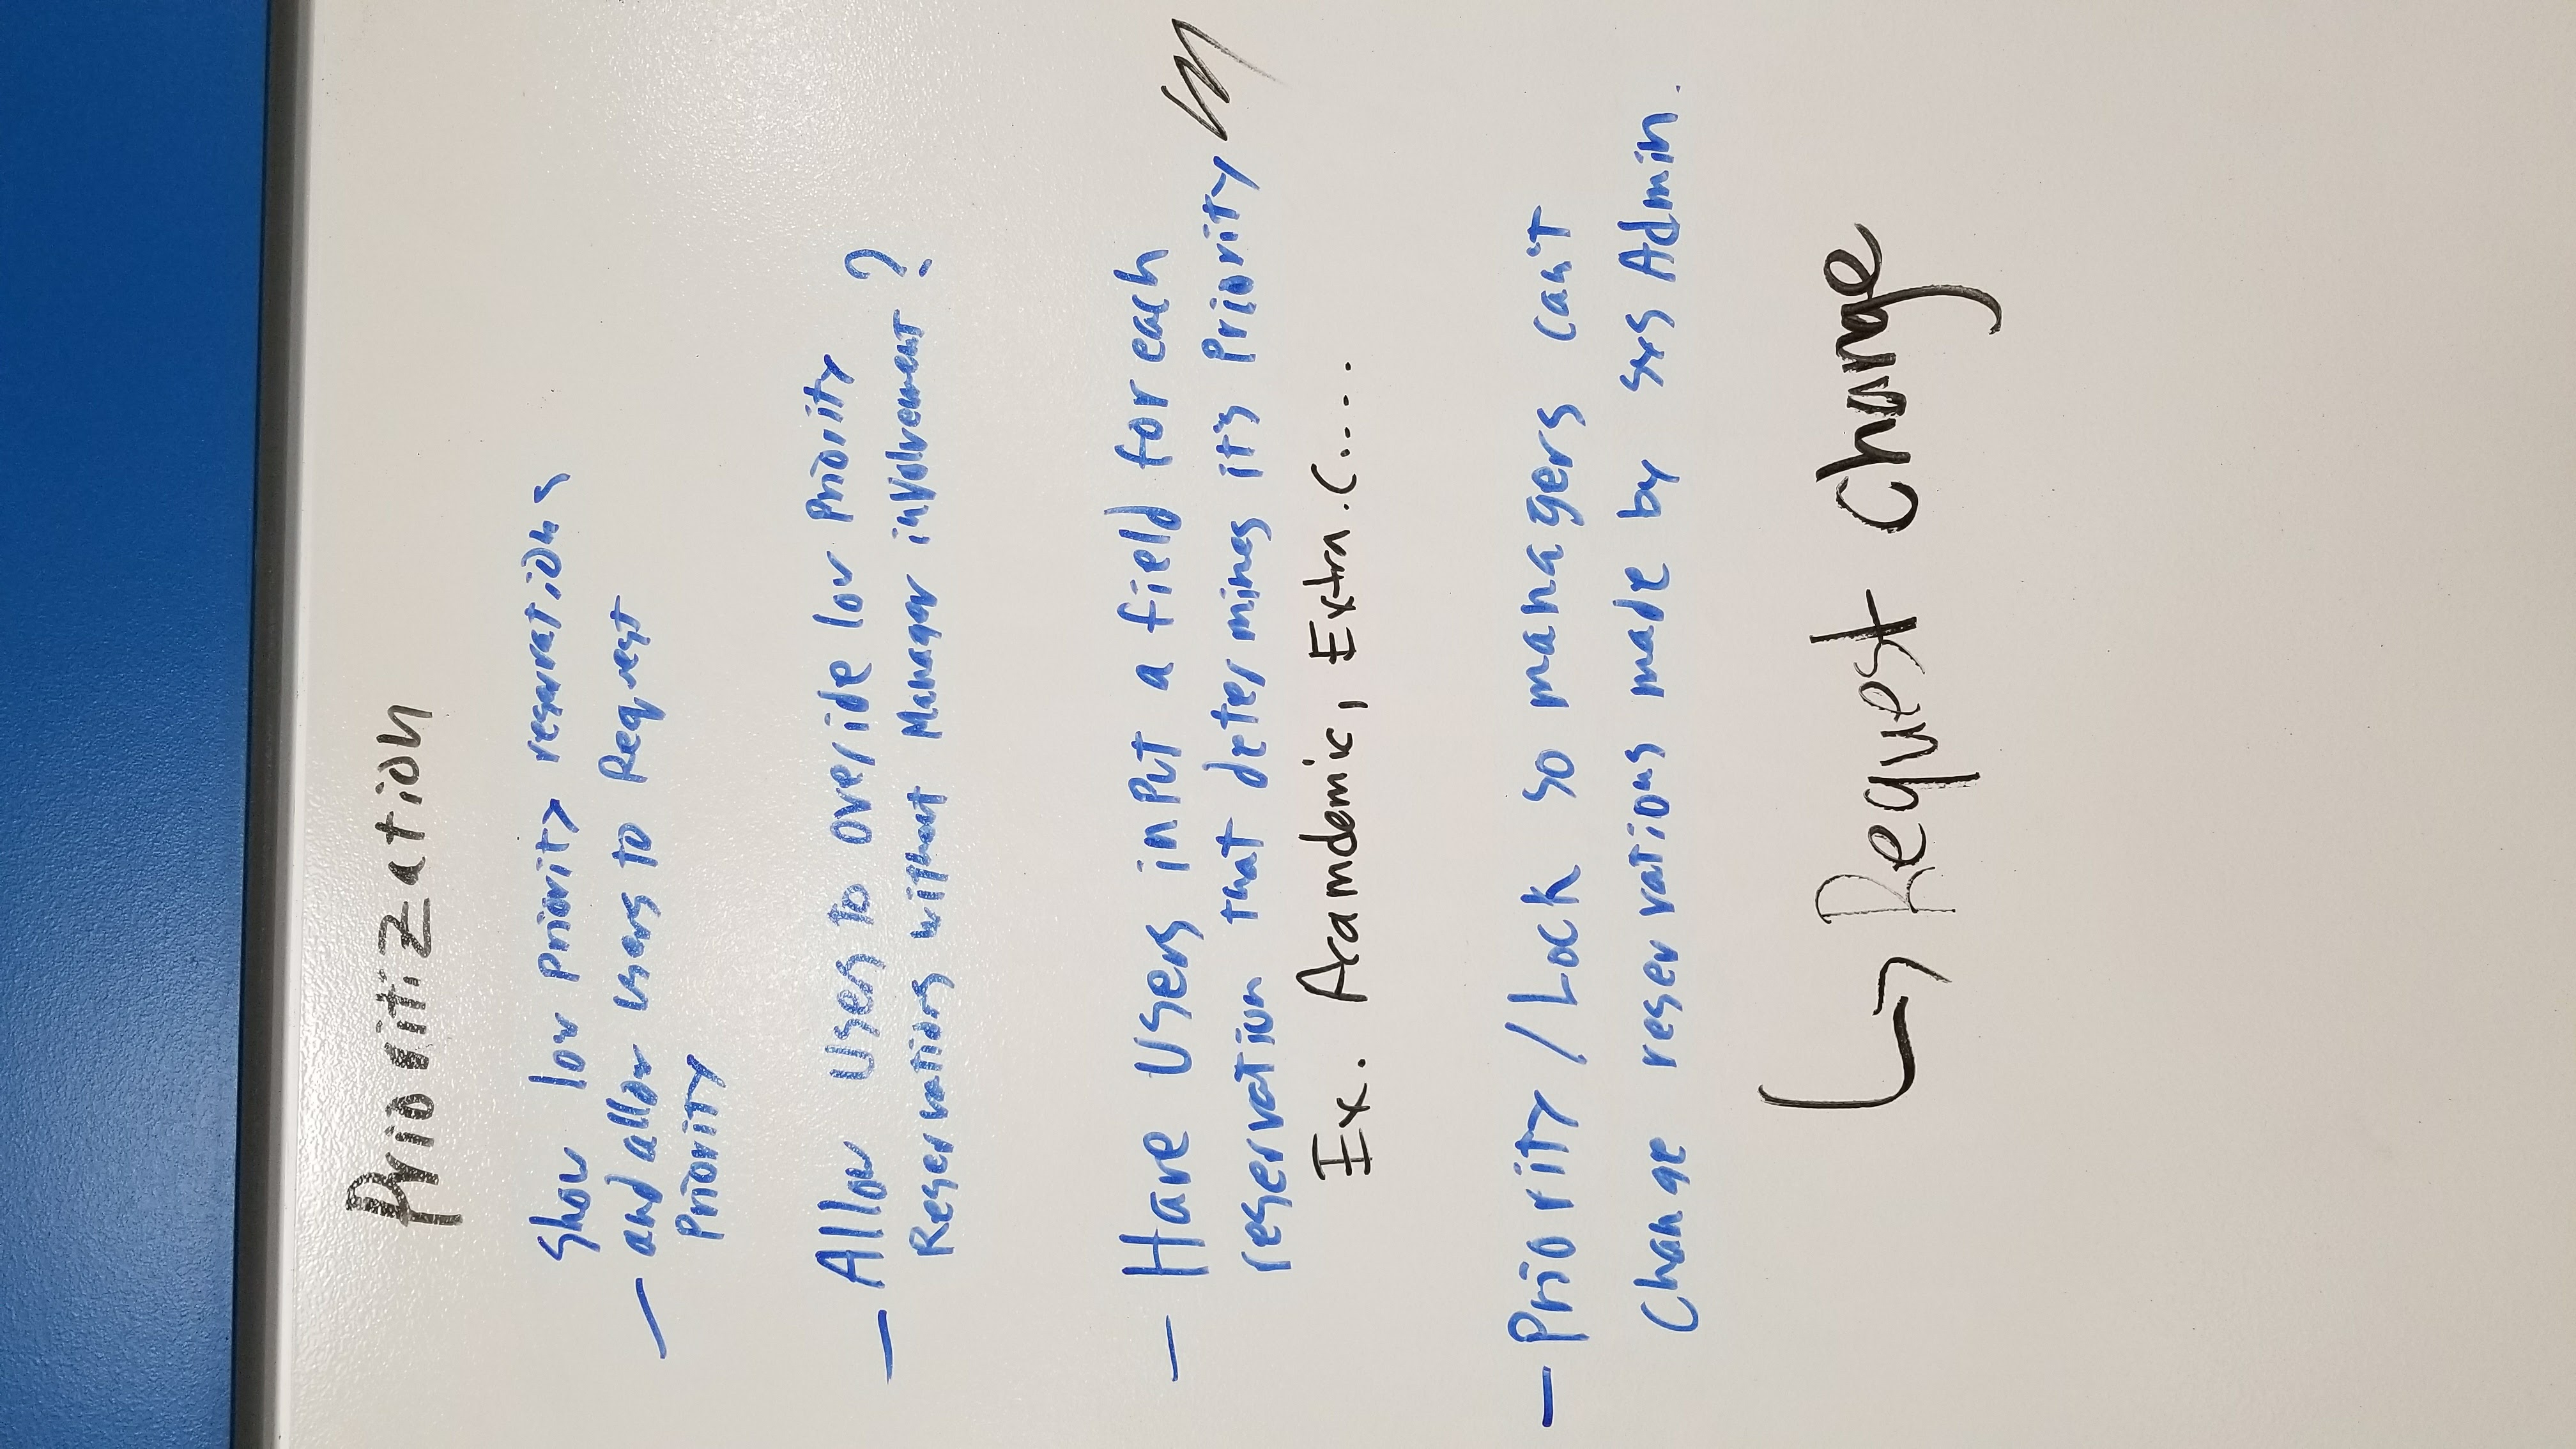 Prioritization
Show low Priority reservations
- and allow users to Request
Priority
- Allow Users to override low Priority
Reservations without Manager involvement ?
- Have Users input a field for each
reservation that determines it's Priority
Ex. Acamdemic, Extra.C....
- Priority / Lock so managers can't
Change reservations made by sys Admin.
↳ Request change